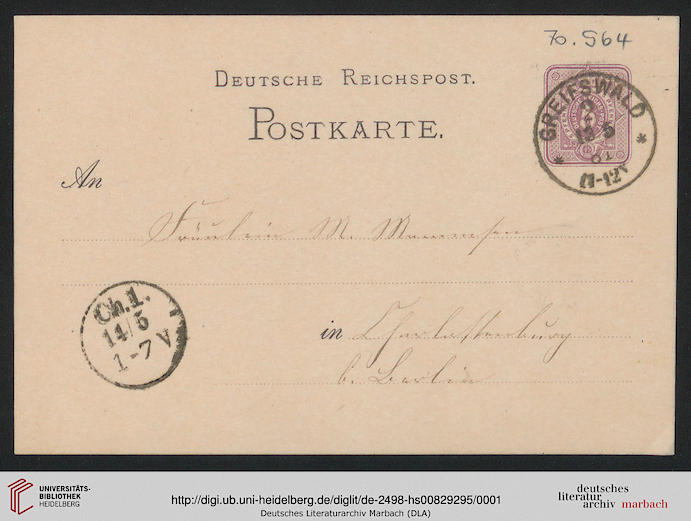 70.964
DEUTSCHE REICHSPOST.
POSTKARTE.
GREIFSWALD
13 5
81
11-12V
An
Fräulein M. Mommsen
Ch.1.
14/5
1-7V
in Charlottenburg
b. Berlin
UNIVERSITÄTS-
BIBLIOTHEK
HEIDELBERG
http://digi.ub.uni-heidelberg.de/diglit/de-2498-hs00829295/0001
Deutsches Literaturarchiv Marbach (DLA)
deutsches
literatur
archiv marbach